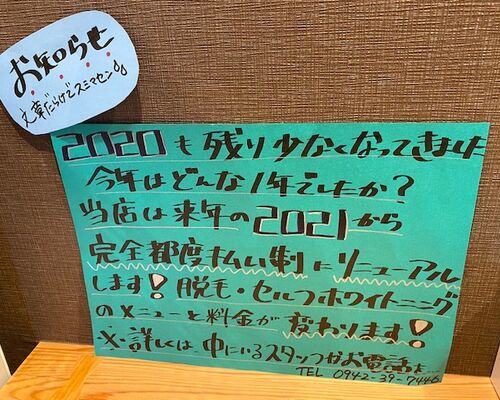 お知らせ
文章だらけでスミマセン
2020も残り少なくなってきました
今年はどんな1年でしたか？
当店は来年の2021から
完全都度払い制にリニューアル
します！脱毛・セルフホワイトニング
のメニューと料金が変わります！
※詳しくは中にいるスタッフかお電話を…
TEL 0942-39-7446